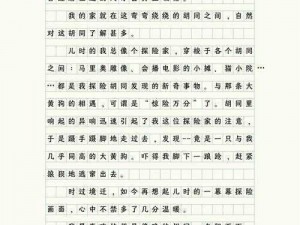 我的家就在这弯弯烧烧的胡同之间，自然
对这胡同了解甚多。
儿时的我总像个探险家，穿梭于各个胡同
之间：马里奥雕像。会播电影的小摊，猫小院……
都是我儿时探险发现的新奇事物。与那条大
黄狗的相遇，可谓是“惊险万分”了。胡同里
响起的异响迅速引起了我这位探险家的注意，
于是蹑手蹑脚地走过去，发现--竟是一只与我
几乎同高的大黄狗。吓得我脚下一踉跄，赶紧
狼狈地逃窜出去。
时过境迁，如今再想起儿时的一幕幕探险
画面，心中不禁多了几分温暖。